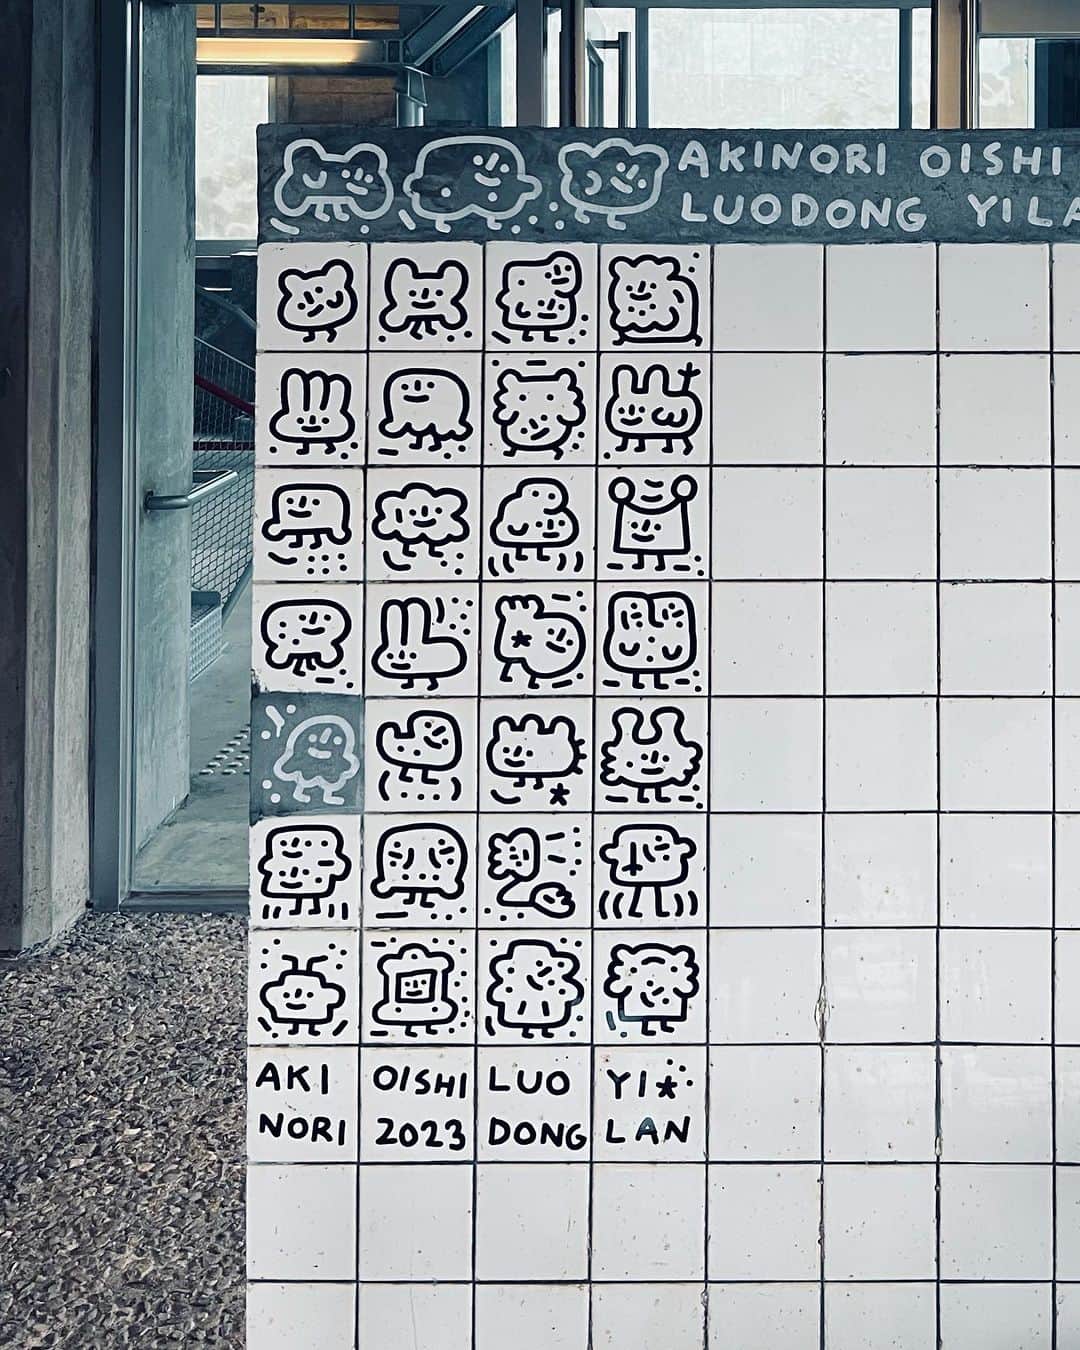 AKINORI OISHI
LUODONG YILA
AKI OISHI LUO YI
NORI 2023 DONG LAN